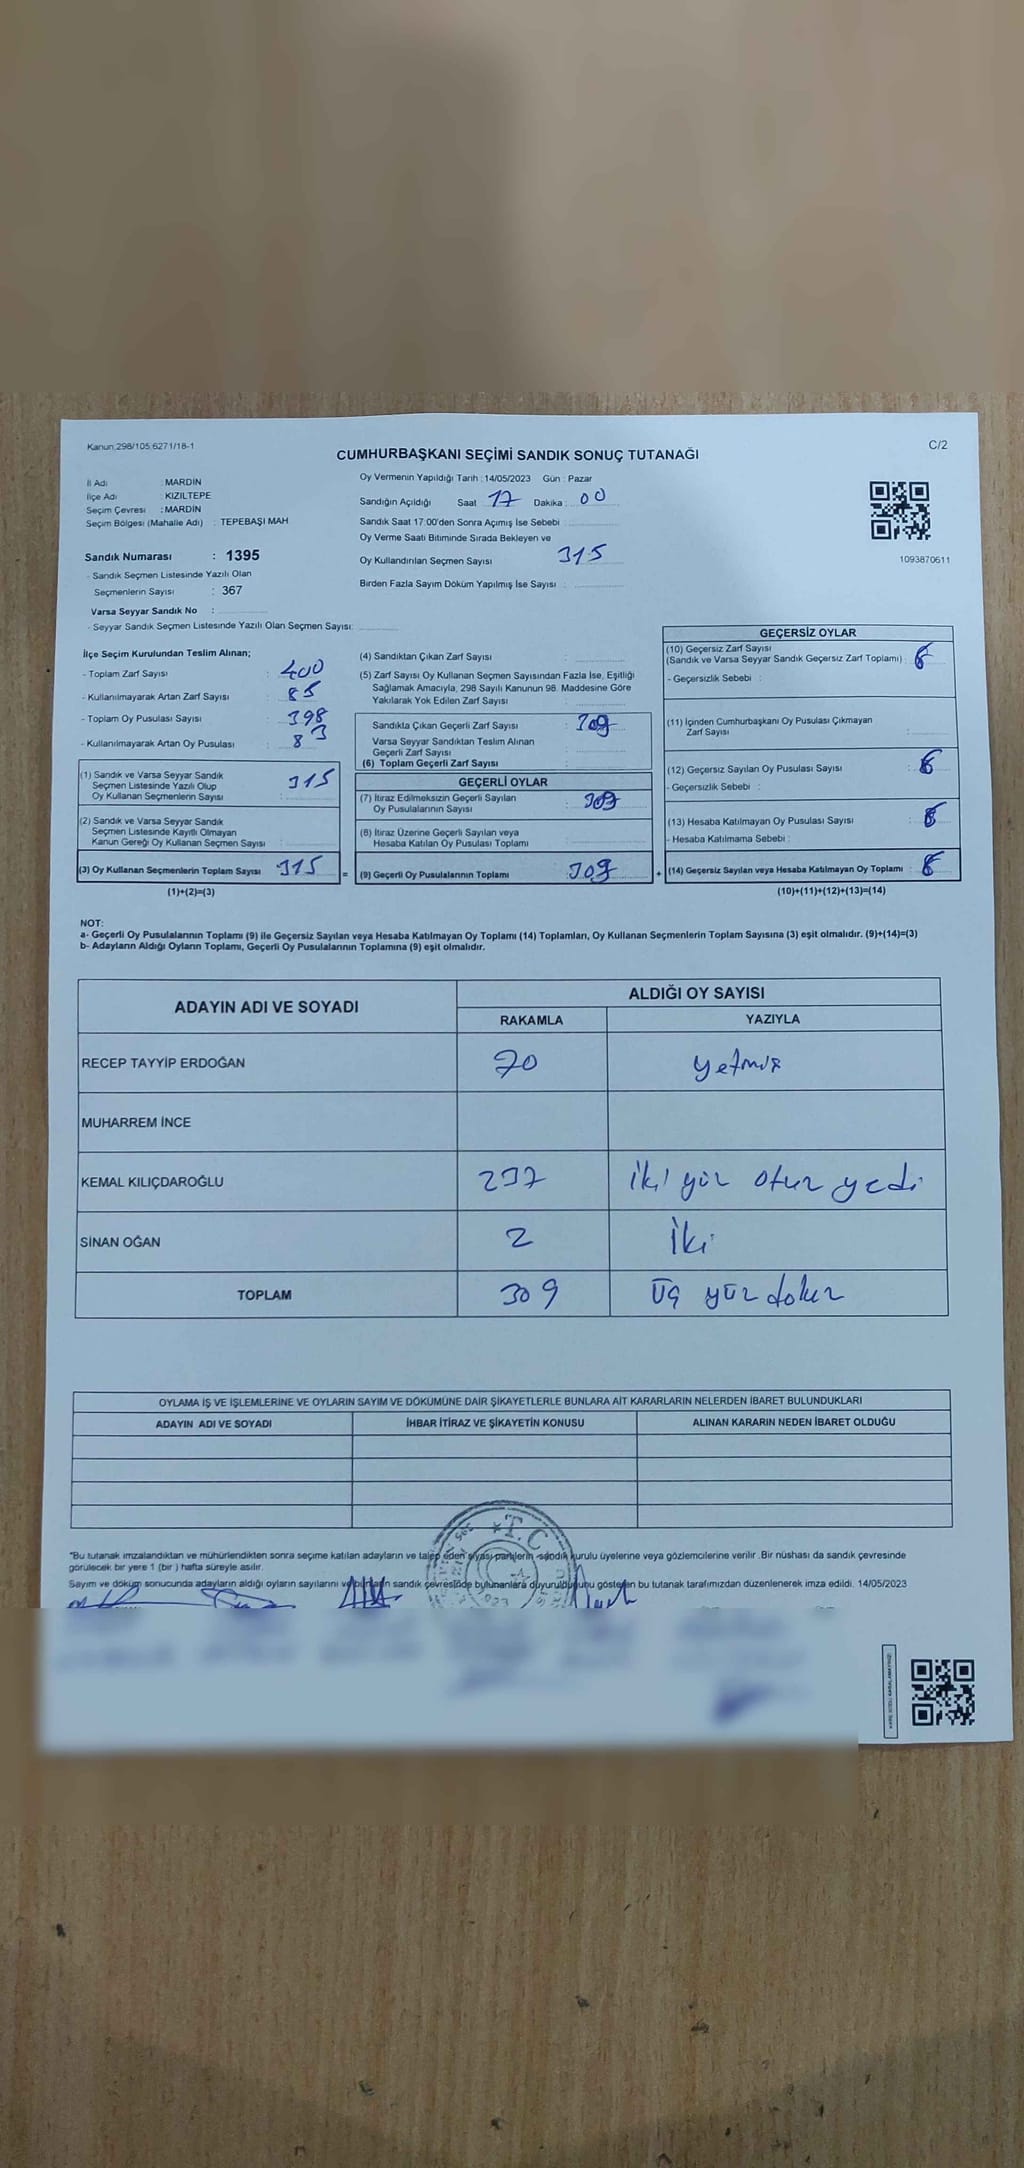 Kanun:298/105;6271/18-1
C/2
CUMHURBAŞKANI SEÇİMİ SANDIK SONUÇ TUTANAĞI
İl Adı : MARDİN
İlçe Adı : KIZILTEPE
Seçim Çevresi : MARDİN
Seçim Bölgesi (Mahalle Adı) : TEPEBAŞI MAH
Sandık Numarası : 1395
- Sandık Seçmen Listesinde Yazılı Olan
Seçmenlerin Sayısı : 367
Varsa Seyyar Sandık No :
- Seyyar Sandık Seçmen Listesinde Yazılı Olan Seçmen Sayısı:
Oy Vermenin Yapıldığı Tarih : 14/05/2023 Gün : Pazar
Sandığın Açıldığı Saat 17 Dakika : 00
Sandık Saat 17:00'den Sonra Açımış İse Sebebi :
Oy Verme Saati Bitiminde Sırada Bekleyen ve
Oy Kullandırılan Seçmen Sayısı 315
Birden Fazla Sayım Döküm Yapılmış İse Sayısı :
1093870611
İlçe Seçim Kurulundan Teslim Alınan;
- Toplam Zarf Sayısı : 400
- Kullanılmayarak Artan Zarf Sayısı : 85
- Toplam Oy Pusulası Sayısı : 398
- Kullanılmayarak Artan Oy Pusulası : 83
(1) Sandık ve Varsa Seyyar Sandık
Seçmen Listesinde Yazılı Olup
Oy Kullanan Seçmenlerin Sayısı : 315
(2) Sandık ve Varsa Seyyar Sandık
Seçmen Listesinde Kayıtlı Olmayan
Kanun Gereği Oy Kullanan Seçmen Sayısı :
(3) Oy Kullanan Seçmenlerin Toplam Sayısı 315
(1)+(2)=(3)
(4) Sandıktan Çıkan Zarf Sayısı :
(5) Zarf Sayısı Oy Kullanan Seçmen Sayısından Fazla İse, Eşitliği
Sağlamak Amacıyla, 298 Sayılı Kanunun 98. Maddesine Göre
Yakılarak Yok Edilen Zarf Sayısı :
Sandıkta Çıkan Geçerli Zarf Sayısı : 309
Varsa Seyyar Sandıktan Teslim Alınan
Geçerli Zarf Sayısı :
(6) Toplam Geçerli Zarf Sayısı :
GEÇERLİ OYLAR
(7) İtiraz Edilmeksizin Geçerli Sayılan
Oy Pusulalarının Sayısı : 309
(8) İtiraz Üzerine Geçerli Sayılan veya
Hesaba Katılan Oy Pusulası Toplamı :
= (9) Geçerli Oy Pusulalarının Toplamı 309 +
GEÇERSİZ OYLAR
(10) Geçersiz Zarf Sayısı
(Sandık ve Varsa Seyyar Sandık Geçersiz Zarf Toplamı) :
- Geçersizlik Sebebi :
(11) İçinden Cumhurbaşkanı Oy Pusulası Çıkmayan
Zarf Sayısı :
(12) Geçersiz Sayılan Oy Pusulası Sayısı :
- Geçersizlik Sebebi :
(13) Hesaba Katılmayan Oy Pusulası Sayısı :
- Hesaba Katılmama Sebebi :
(14) Geçersiz Sayılan veya Hesaba Katılmayan Oy Toplamı :
(10)+(11)+(12)+(13)=(14)
NOT:
a- Geçerli Oy Pusulalarının Toplamı (9) ile Geçersiz Sayılan veya Hesaba Katılmayan Oy Toplamı (14) Toplamları, Oy Kullanan Seçmenlerin Toplam Sayısına (3) eşit olmalıdır. (9)+(14)=(3)
b- Adayların Aldığı Oyların Toplamı, Geçerli Oy Pusulalarının Toplamına (9) eşit olmalıdır.
ADAYIN ADI VE SOYADI
ALDIĞI OY SAYISI
RAKAMLA YAZIYLA
RECEP TAYYİP ERDOĞAN 70 yetmiş
MUHARREM İNCE
KEMAL KILIÇDAROĞLU 237 iki yüz otuz yedi
SİNAN OĞAN 2 iki
TOPLAM 309 üç yüz dokuz
OYLAMA İŞ VE İŞLEMLERİNE VE OYLARIN SAYIM VE DÖKÜMÜNE DAİR ŞİKAYETLERLE BUNLARA AİT KARARLARIN NELERDEN İBARET BULUNDUKLARI
ADAYIN ADI VE SOYADI İHBAR İTİRAZ VE ŞİKAYETİN KONUSU ALINAN KARARIN NEDEN İBARET OLDUĞU
T.C
"Bu tutanak imzalandıktan ve mühürlendikten sonra seçime katılan adayların ve talep eden siyasi partilerin sandık kurulu üyelerine veya gözlemcilerine verilir. Bir nüshası da sandık çevresinde
görülecek bir yere 1 (bir) hafta süreyle asılır.
Sayım ve döküm sonucunda adayların aldığı oyların sayılarını ve bunların sandık çevresinde bulunanlara duyurulduğunu gösteren bu tutanak tarafımızdan düzenlenerek imza edildi. 14/05/2023